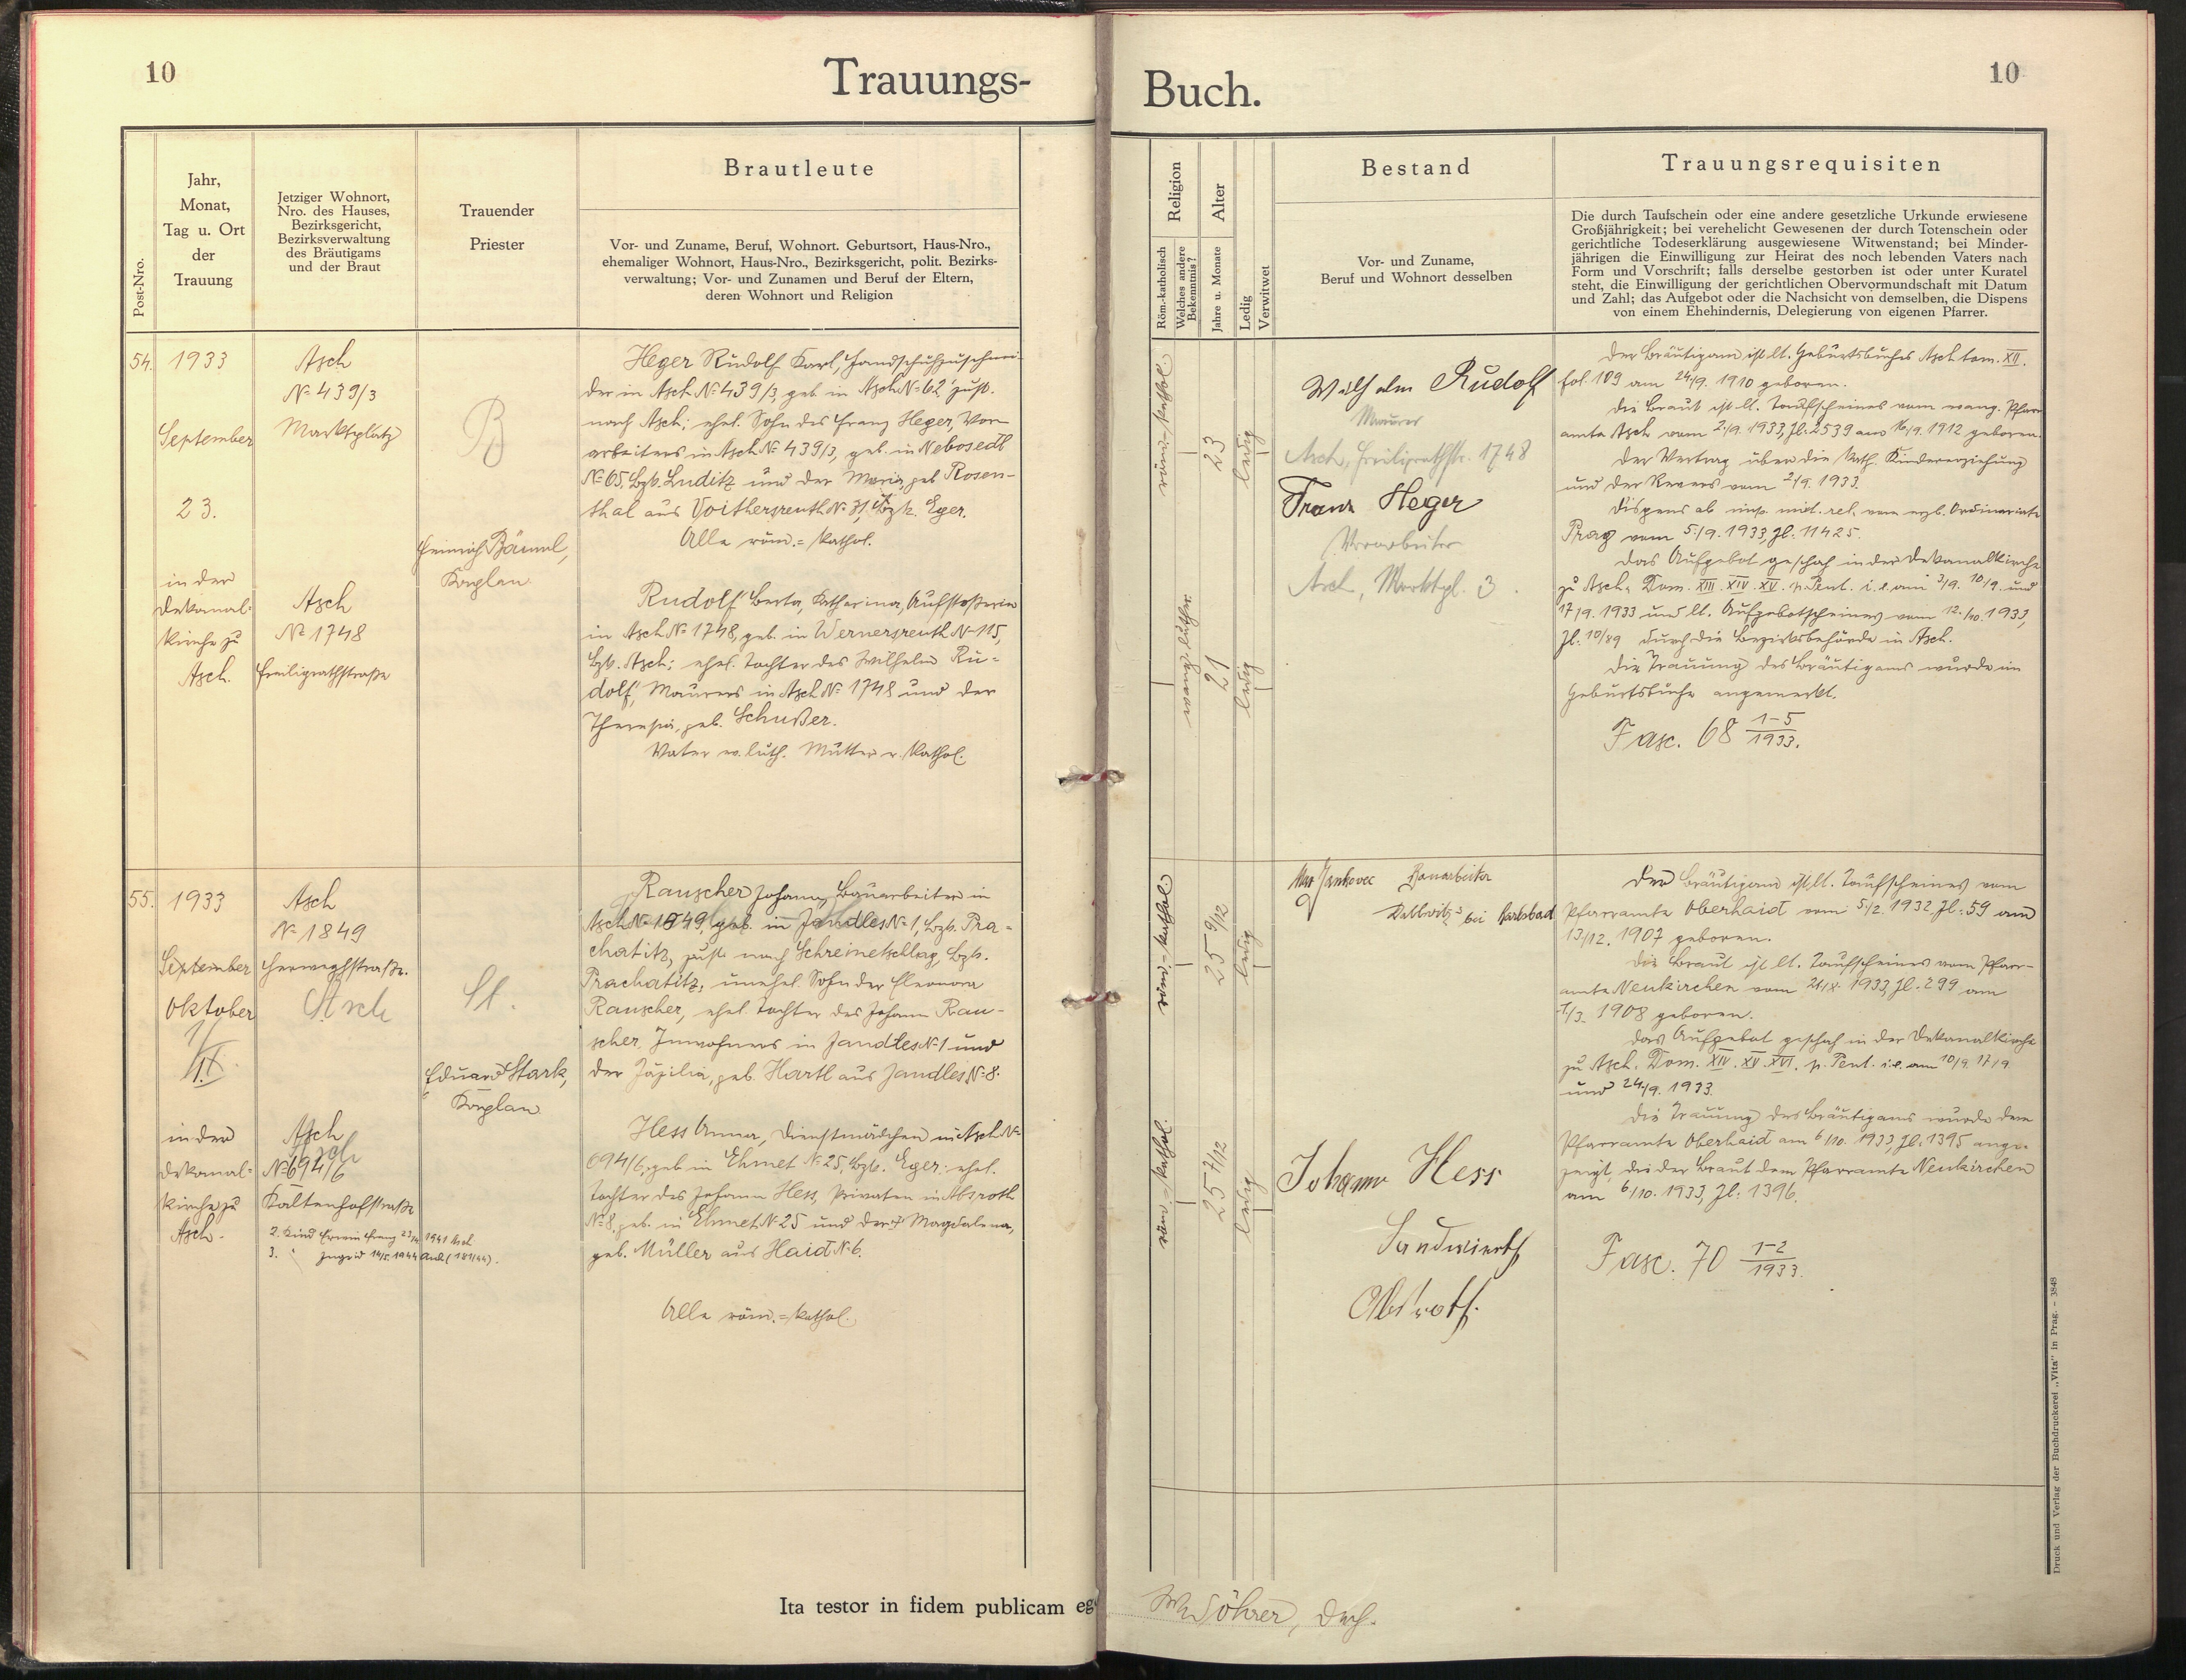 10
Trauungs-
Post-Nro.
Jahr,
Monat,
Tag u. Ort
der
Trauung
Jetziger Wohnort,
Nro. des Hauses,
Bezirksgericht,
Bezirksverwaltung
des Bräutigams
und der Braut
Trauender
Priester
Brautleute
Vor- und Zuname, Beruf, Wohnort. Geburtsort, Haus-Nro.,
ehemaliger Wohnort, Haus-Nro., Bezirksgericht, polit. Bezirks-
verwaltung; Vor- und Zunamen und Beruf der Eltern,
deren Wohnort und Religion
54.
1933
September
23.
in der
Dekanal-
kirche zu
Asch.
Asch
No 439/3
Marktplatz
Asch
No 1748
Freiligrathstraße
B
Heinrich Bäuml,
Kaplan
Heger Rudolf Karl, Handschuhzuschnei-
der in Asch No 439/3, geb. in Asch No 62 zust.
nach Asch; ehel. Sohn des Franz Heger, Vor-
arbeiters in Asch No 439/3, geb. in Nebosedl
No 65, Bzk. Luditz und der Maria, geb. Rosen-
thal aus Voithersreuth No 31, Bzk. Eger.
Alle röm.=kathol.
Rudolf Berta, Katharina, Aufstoßerin
in Asch No 1748, geb. in Wernersreuth No 115,
Bzk. Asch; ehel. Tochter des Wilhelm Ru-
dolf, Maurers in Asch No 1748 und der
Theresia, geb. Schußer.
Vater ev. luth. Mutter r. kathol.
55.
1933
September
Oktober
1/
IX.
in der
Dekanal-
kirche zu
Asch.
Asch
No 1849
Herweghstraße.
Asch
Asch
No 694/6
Kaltenhofstraße
2. Kind Erwin Franz 1941 Asch
3. " Ingrid 14/5. 1944 Asch (181/44).
St.
Eduard Stark,
Kaplan
Rauscher Johann, Bauarbeiter in
Asch No 1849, geb. in Jandles No 1, Bzk. Pra-
chatitz, zust. nach Schreinetschlag, Bzk.
Prachatitz, unehel. Sohn der Eleonora
Rauscher, ehel. Tochter des Johann Rau-
scher, Inwohners in Jandles No 1 und
der Zäzilia, geb. Hartl aus Jandles No 8.
Hess Anna, Dienstmädchen in Asch No
694/6, geb. in Ehmet No 25, Bzk. Eger; ehel.
Tochter des Johann Hess, Privaten in Absroth
No 8, geb. in Ehmet No 25 und der † Magdalena,
geb. Müller aus Haid No 6.
Alle röm.=kathol.
Ita testor in fidem publicam eg
10
Buch.
Religion
Röm.-katholisch
Welches andere
Bekenntnis?
Alter
Jahre u. Monate
Ledig
Verwitwet
Bestand
Vor- und Zuname,
Beruf und Wohnort desselben
Trauungsrequisiten
Die durch Taufschein oder eine andere gesetzliche Urkunde erwiesene
Großjährigkeit; bei verehelicht Gewesenen der durch Totenschein oder
gerichtliche Todeserklärung ausgewiesene Witwenstand; bei Minder-
jährigen die Einwilligung zur Heirat des noch lebenden Vaters nach
Form und Vorschrift; falls derselbe gestorben ist oder unter Kuratel
steht, die Einwilligung der gerichtlichen Obervormundschaft mit Datum
und Zahl; das Aufgebot oder die Nachsicht von demselben, die Dispens
von einem Ehehindernis, Delegierung von eigenen Pfarrer.
röm.-kathol.
23
ledig
evang. luther.
21
ledig
Wilhelm Rudolf
Maurer
Asch, Freiligrathstr. 1748
Franz Heger
Vorarbeiter
Asch, Marktpl. 3.
Der Bräutigam ist lt. Geburtsbuches Asch tom. XII.
fol. 109 am 24/9. 1910 geboren.
Die Braut ist lt. Taufscheines vom evang. Pfarr-
amte Asch vom 2/9. 1933, Zl. 2539 am 16/9. 1912 geboren.
Der Vertrag über die kath. Kindererziehung
und der Revers vom 2/9. 1933.
Dispens ab imp. mixt. rel. vom erzb. Ordinariate
Prag vom 5/9. 1933, Zl. 11425.
Das Aufgebot geschah in der Dekanalkirche
zu Asch, Dom. XIII. XIV. XV. p. Pent. i. e. am 3/9. 10/9. und
17/9. 1933 und lt. Aufgebotscheines vom 12./10. 1933,
Zl. 10/89 durch die Bezirksbehörde in Asch.
Die Trauung des Bräutigams wurde im
Geburtsbuche angemerkt.
Fasc. 68 1-5/1933.
röm.-kathol.
25 9/12
ledig
röm.-kathol.
25 7/12
ledig
Max Jankovec Bauarbeiter
Dallwitz bei Karlsbad
Johann Hess
Landwirth
Absroth.
Der Bräutigam ist lt. Taufscheines vom
Pfarramte Oberhaid vom 5/2. 1932, Zl. 59 am
13/12. 1907 geboren.
Die Braut ist lt. Taufscheines vom Pfarr-
amte Neukirchen vom 1933, Zl. 299 am
1/3. 1908 geboren.
Das Aufgebot geschah in der Dekanalkirche
zu Asch, Dom. XIV. XV. XVI. p. Pent. i.e. am 10/9. 17/9.
und 24/9. 1933.
Die Trauung des Bräutigams wurde dem
Pfarramte Oberhaid am 6/10. 1933, Zl. 1395 ange-
zeigt, die der Braut dem Pfarramte Neukirchen
am 6/10. 1933, Zl. 1396.
Fasc. 70 1-2/1933.
Söhrer, Dech.
Druck und Verlag der Buchdruckerei „Vita" in Prag. — 3848